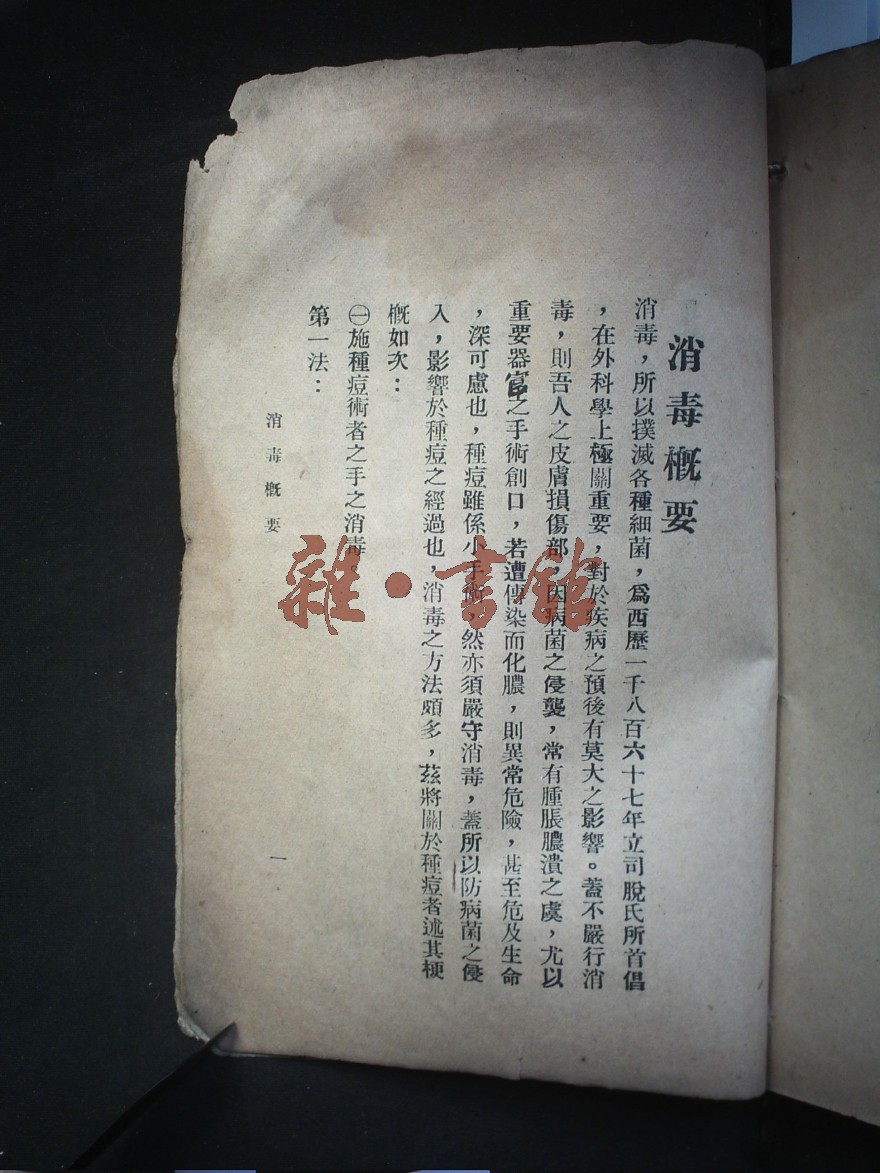 消毒概要
消毒，所以撲滅各種細菌，爲西歷一千八百六十七年立司脫氏所首倡
，在外科學上極關重要，對於疾病之預後有莫大之影響。蓋不嚴行消
毒，則吾人之皮膚損傷部，因病菌之侵襲，常有腫脹膿潰之虞，尤以
重要器官之手術創口，若遭傳染而化膿，則異常危險，甚至危及生命
，深可慮也，種痘雖係小手術，然亦須嚴守消毒，蓋所以防病菌之侵
入，影響於種痘之經過也，消毒之方法頗多，茲將關於種痘者述其梗
概如次：
㊀施種痘術者之手之消毒。
第一法：
消毒概要
一
雜·書館